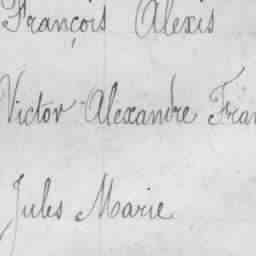 François Alexis
Victor Alexandre Fran
Jules Marie